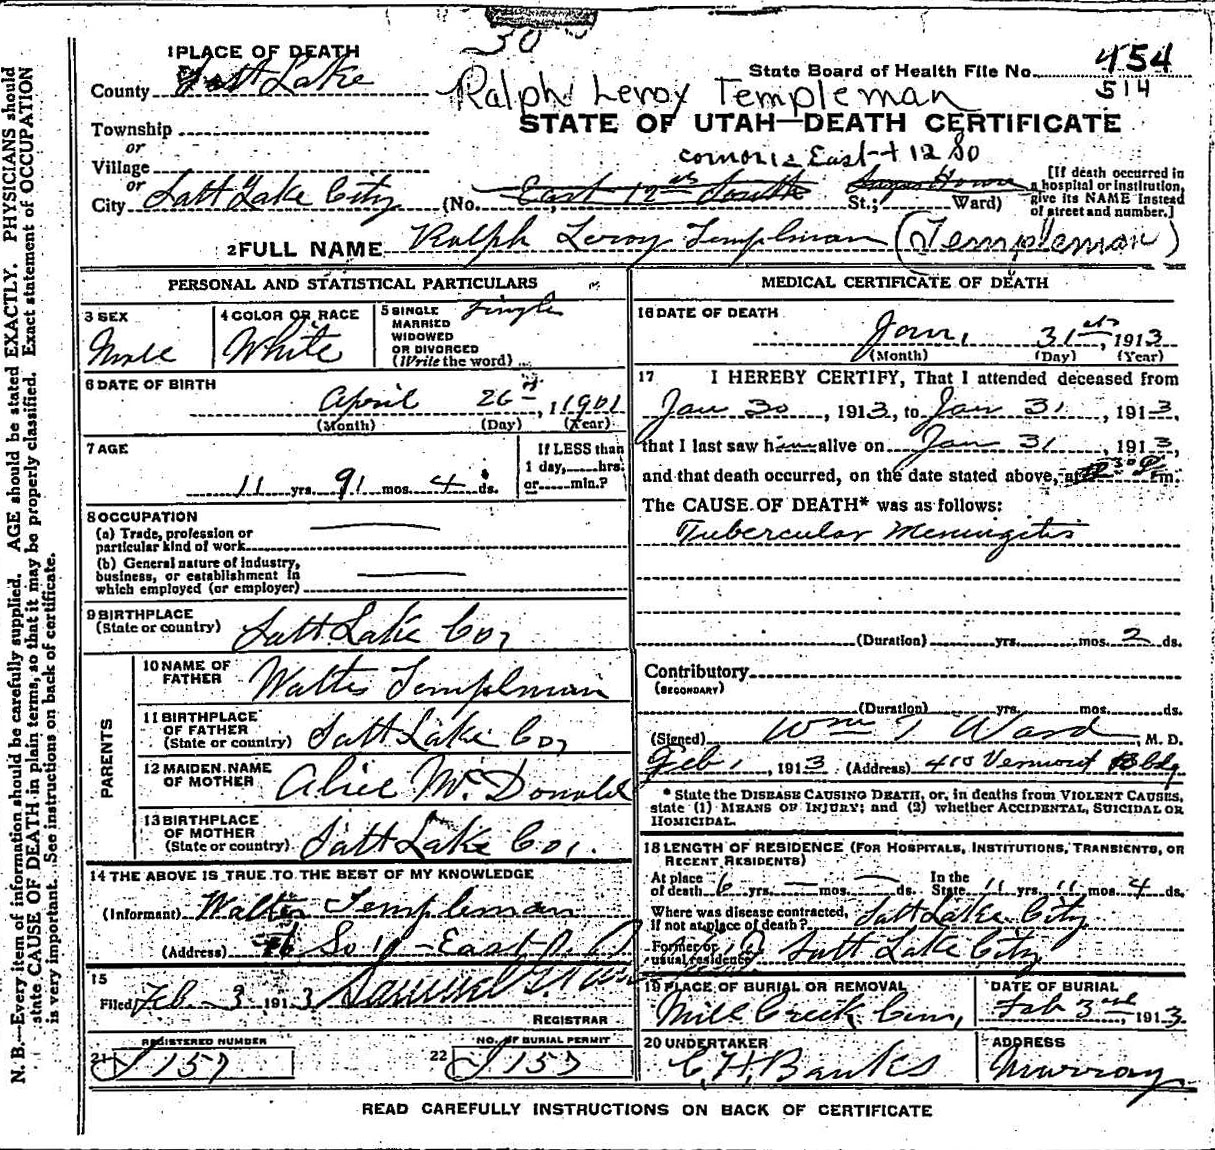 30
1 PLACE OF DEATH
County Salt Lake
State Board of Health File No. 454
514
Ralph Leroy Templeman
STATE OF UTAH—DEATH CERTIFICATE
Township
or
Village
or
City Salt Lake City (No. East 12th South St.; Ward)
cornor 12 East + 12 So
[If death occurred in a hospital or institution, give its NAME instead of street and number.]
2 FULL NAME Ralph Leroy Templman (Templeman)
PERSONAL AND STATISTICAL PARTICULARS
3 SEX
Male
4 COLOR OR RACE
White
5 SINGLE
MARRIED
WIDOWED
OR DIVORCED
(Write the word)
Single
6 DATE OF BIRTH
April 26th, 1901
(Month) (Day) (Year)
7 AGE
11 yrs. 9 mos. 4 ds.
If LESS than
1 day, hrs.
or min.?
8 OCCUPATION
(a) Trade, profession or
particular kind of work
(b) General nature of industry,
business, or establishment in
which employed (or employer)
9 BIRTHPLACE
(State or country) Salt Lake Co,
PARENTS
10 NAME OF
FATHER Walter Templman
11 BIRTHPLACE
OF FATHER
(State or country) Salt Lake Co,
12 MAIDEN NAME
OF MOTHER Alice McDonald
13 BIRTHPLACE
OF MOTHER
(State or country) Salt Lake Co.
14 THE ABOVE IS TRUE TO THE BEST OF MY KNOWLEDGE
(Informant) Walter Templeman
(Address) So 11 - East
15
Filed Feb - 3, 1913 Samuel G.
REGISTRAR
REGISTERED NUMBER
21 J 157
NO. OF BURIAL PERMIT
22 J 157
MEDICAL CERTIFICATE OF DEATH
16 DATE OF DEATH
Jan, 31st, 1913
(Month) (Day) (Year)
17 I HEREBY CERTIFY, That I attended deceased from
Jan 30, 1913, to Jan 31, 1913,
that I last saw him alive on Jan 31, 1913,
and that death occurred, on the date stated above, at P m.
The CAUSE OF DEATH* was as follows:
Tubercular Meningitis
(Duration) yrs. mos. 2 ds.
Contributory
(SECONDARY)
(Duration) yrs. mos. ds.
(Signed) Wm T Ward, M. D.
Feb 1, 1913 (Address) 410 Vermont Bldg
* State the DISEASE CAUSING DEATH, or, in deaths from VIOLENT CAUSES,
state (1) MEANS OF INJURY; and (2) whether ACCIDENTAL, SUICIDAL OR
HOMICIDAL.
18 LENGTH OF RESIDENCE (FOR HOSPITALS, INSTITUTIONS, TRANSIENTS, OR
RECENT RESIDENTS)
At place
of death 6 yrs. — mos. — ds.
In the
State 11 yrs. 11 mos. 4 ds.
Where was disease contracted,
if not at place of death? Salt Lake City
Former or
usual residence Salt Lake City
19 PLACE OF BURIAL OR REMOVAL
Mill Creek Cem,
DATE OF BURIAL
Feb 3rd, 1913.
20 UNDERTAKER
C, H, Banks
ADDRESS
Murray
READ CAREFULLY INSTRUCTIONS ON BACK OF CERTIFICATE
N. B.—Every item of information should be carefully supplied. AGE should be stated EXACTLY. PHYSICIANS should
state CAUSE OF DEATH in plain terms, so that it may be properly classified. Exact statement of OCCUPATION
is very important. See instructions on back of certificate.